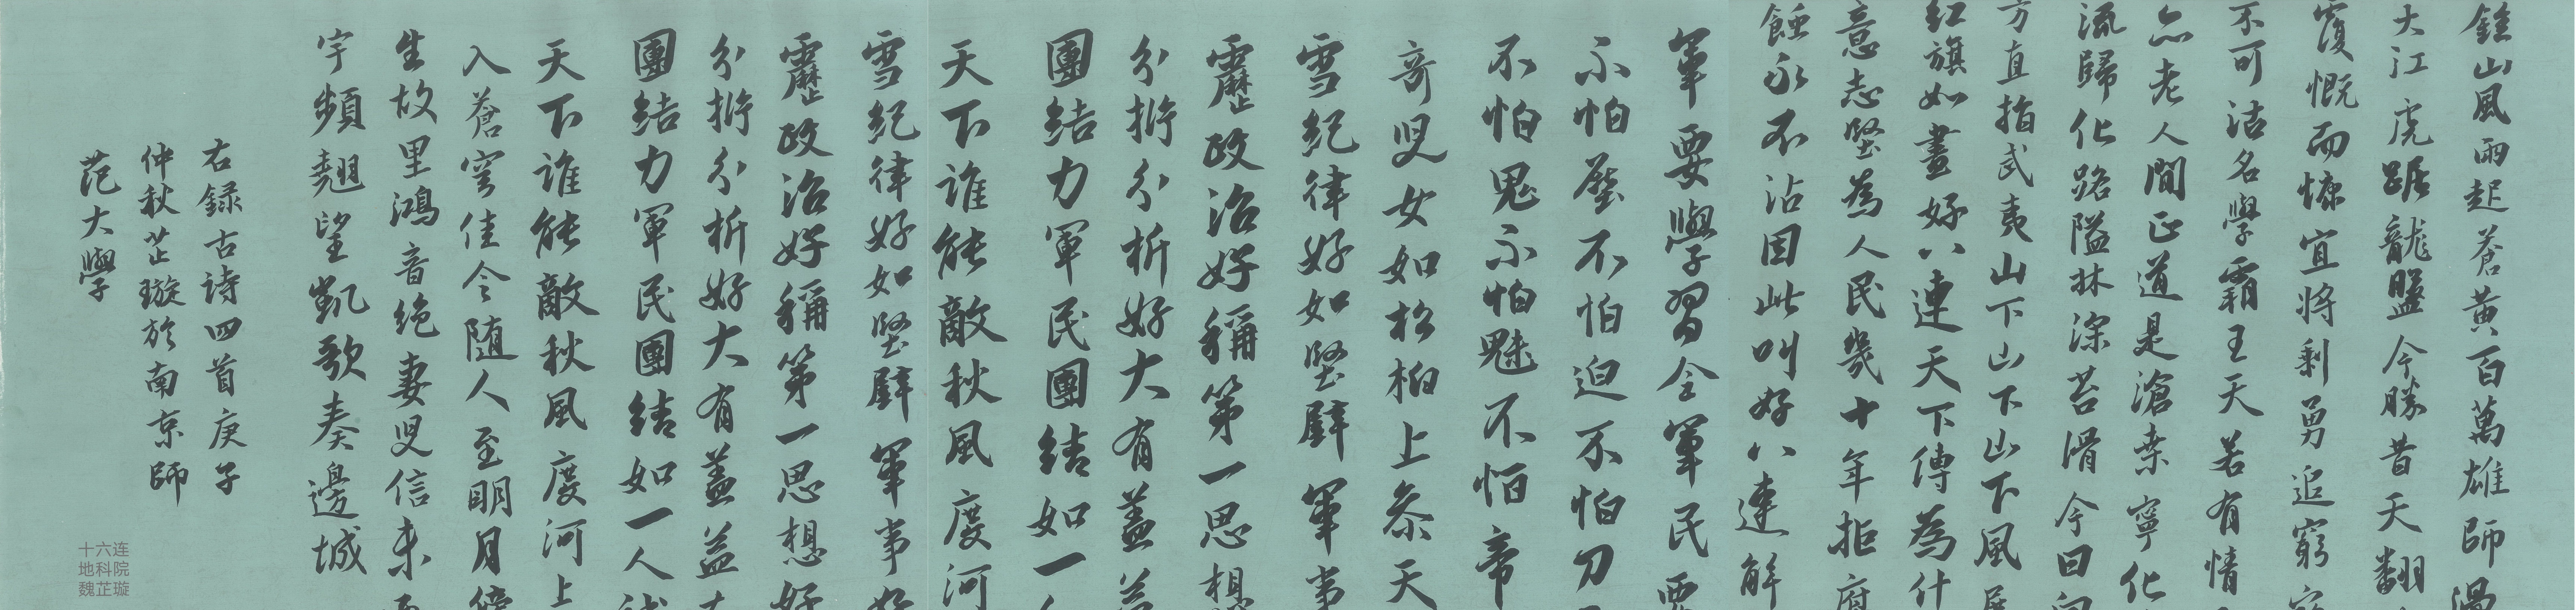 鍾山風雨起蒼黃百萬雄師過
大江虎踞龍盤今勝昔天翻
覆慨而慷宜將剩勇追窮寇
不可沽名學霸王天若有情
亦老人間正道是滄桑寧化
流歸化路隘林深苔滑今日向
方直指武夷山下山下山下風展
紅旗如畫好八連天下傳為什
意志堅為人民幾十年拒腐
蝕永不沾因此叫好八連解
軍要學習全軍民要
不怕壓不怕迫不怕刀
不怕鬼不怕魅不怕帝
奇兒女如松柏上參天
雪紀律好如堅壁軍事
靂政治好稱第一思想
分析分析好大有蓋益
團結力軍民團結如一
天下誰能敵秋風度河
雪紀律好如堅壁軍事好
靂政治好稱第一思想好
分析分析好大有蓋益
團結力軍民團結如一人試
天下誰能敵秋風度河上
入蒼穹佳令隨人至明月傍
生故里鴻音絕妻兒信未
宇頻翹望凱歌奏邊城
右錄古詩四首庚子
仲秋芷璇於南京師
范大學
十六连
地科院
魏芷璇